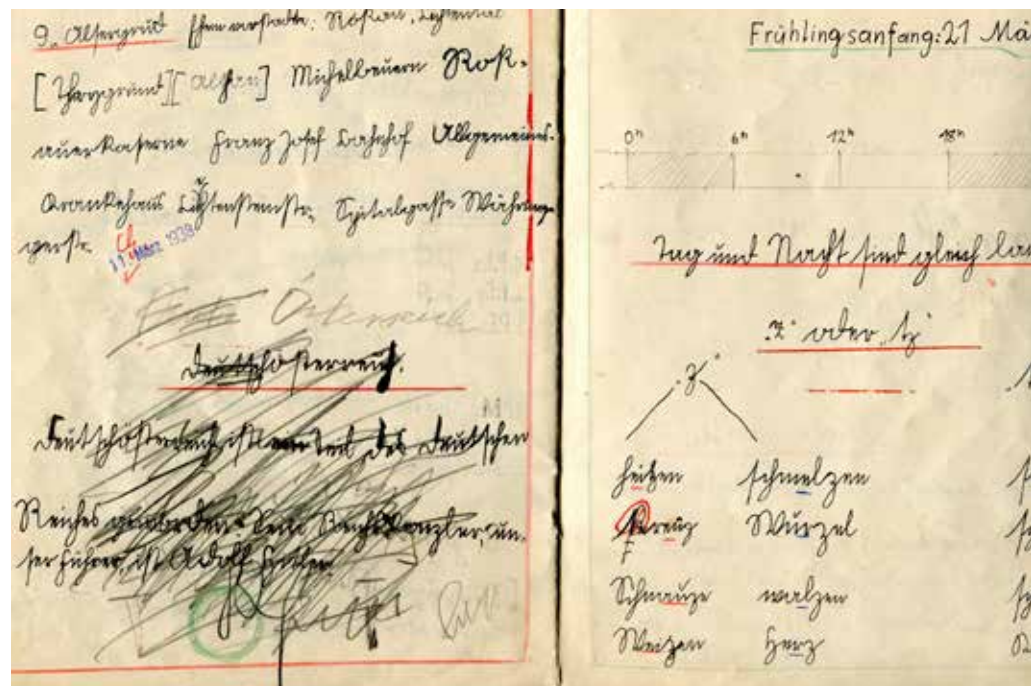 9. Alsergrund Ehem. Vorstädte: Roßau, Lichtental
[Thurygrund] [Althan] Michelbeuern Roß-
auer Kaserne Franz Josef Bahnhof Allgemeines-
Krankehaus Lichtensteinstr. Spitalgasse Währinge
gerstr.
11. März 1938
Österreich
Deutschösterreich.
Deutschösterreich ist ein Teil des Deutschen
Reiches geworden. Sein Reichskanzler, un-
ser Führer, ist Adolf Hitler.
Frühlingsanfang: 21 Mä
0h 6h 12h 18h
Tag und Nacht sind gleich la
„z" oder „tz"
„z"
heizen schmelzen
Kreuz Wurzel
Schnauze walzen
Weizen Herz